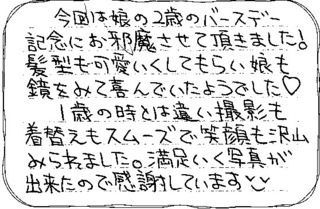 今回は娘の2歳のバースデー
記念にお邪魔させて頂きました!
髪型も可愛いくしてもらい娘も
鏡をみて喜んでいたようでした♡
1歳の時とは違い撮影も
着替えもスムーズで笑顔も沢山
みられました。満足いく写真が
出来たので感謝しています